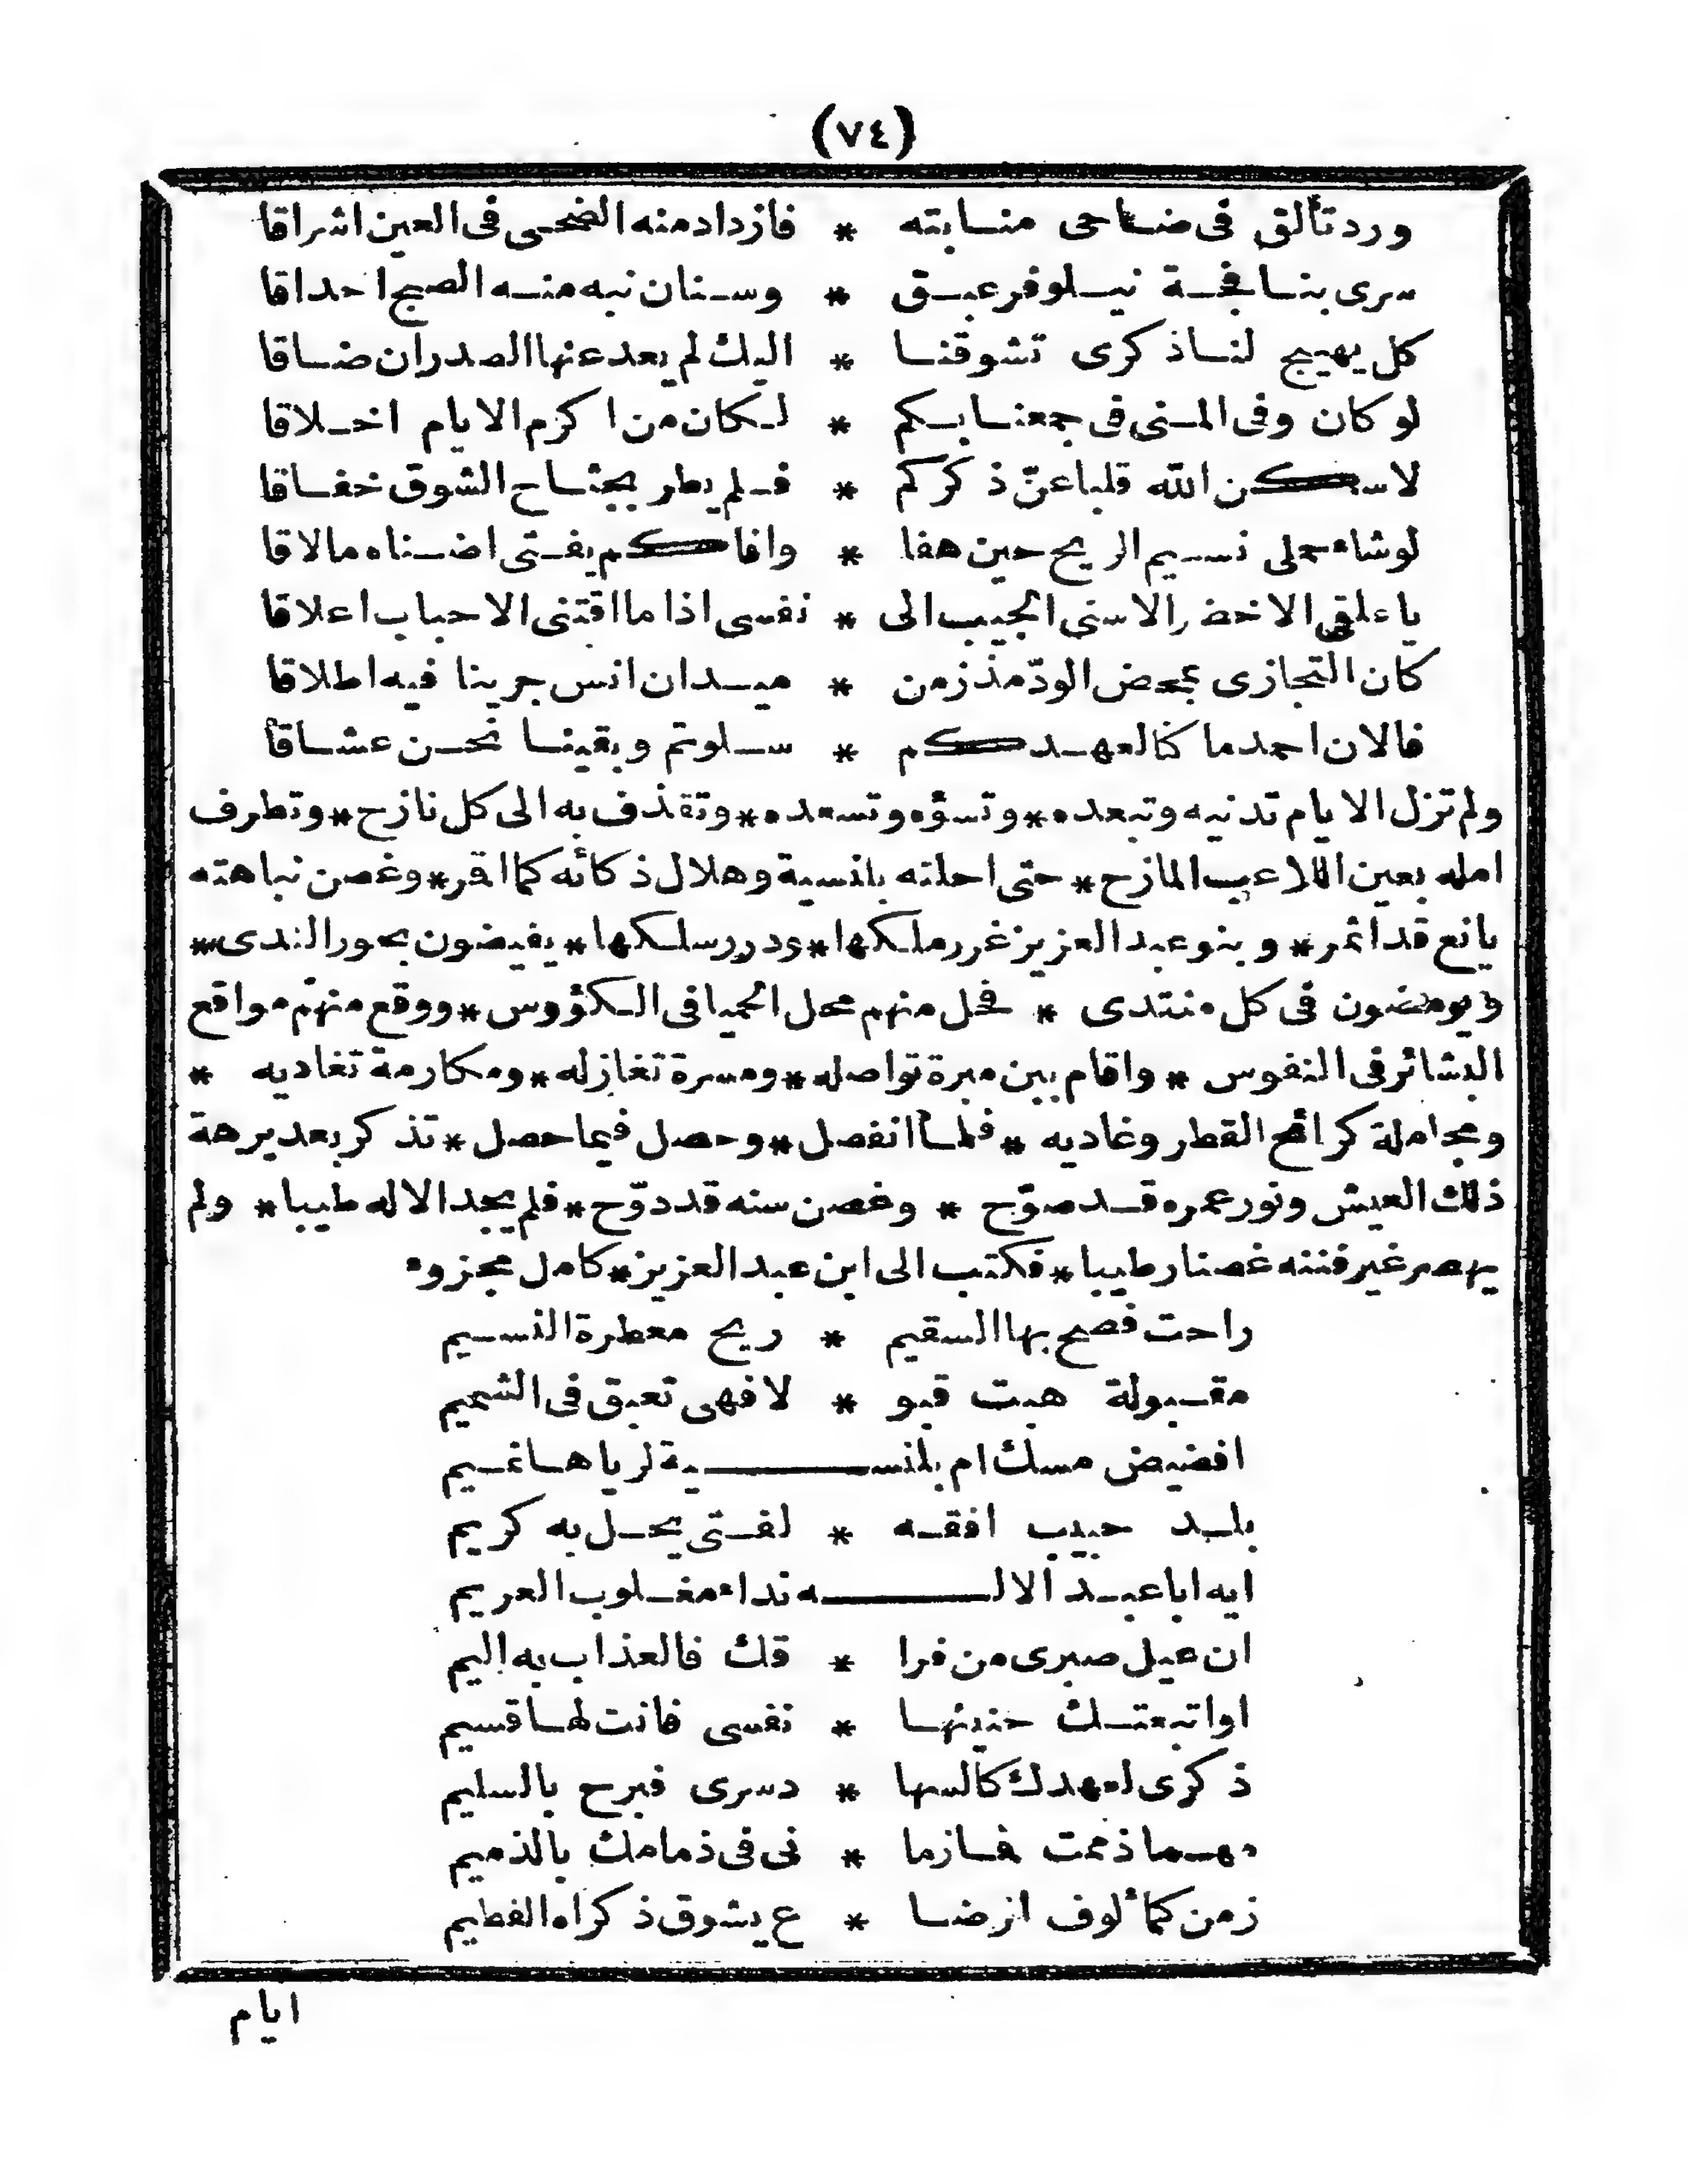 (٧٤)
ورد تألق فى ضاحى منابته * فازداد منه الضحى فى العين اشراقا
سرى بنافحة نيلوفر عبق * وسنان نبه منه الصبح احداقا
كل يهيج لنا ذكرى تشوقنا * اليك لم يعد عنها الصدر ان ضاقا
لو كان وفى المنى فى جمعنا بكم * لكان من اكرم الايام اخلاقا
لا سكن الله قلبا عنّ ذكركم * فلم يطر بجناح الشوق خفاقا
لو شاء حملى نسيم الريح حين هفا * وافاكم بفتى اضناه ما لاقا
يا علقى الاخضر الاسنى الحبيب الى * نفسى اذا ما اقتنى الاحباب اعلاقا
كان التجازى بمحض الودّ مذ زمن * ميدان انس جرينا فيه اطلاقا
فالان احمد ما كنا لعهدكم * سلوتم وبقينا نحن عشاقا
ولم تزل الايام تدنيه وتبعده * وتسؤه وتسعده * وتقذف به الى كل نازح * وتطرف
امله بعين اللاعب المازح * حتى احلته بلنسية وهلال ذكائه كما اقر * وغصن نباهته
يانع قد اثمر * وبنو عبد العزيز غرر ملكها * ودرر سلكها * يفيضون بحور الندى *
ويومضون فى كل منتدى * فحل منهم محل الحميا فى الكؤوس * ووقع منهم مواقع
البشائر فى النفوس * واقام بين مبرة تواصله * ومسرة تغازله * ومكارمة تغاديه *
ومجاملة كرائح القطر وغاديه * فلما انفصل * وحصل فيما حصل * تذكر بعد برهة
ذلك العيش ونور عمره قد صوّح * وغصن سنه قد دوّح * فلم يجد الا له طيبا * ولم
يهصر غير فننه غصنا رطيبا * فكتب الى ابن عبد العزيز * كامل مجزوء
راحت فصح بها السقيم * ريح معطرة النسيم
مقبولة هبت قبو * لا فهى تعبق فى الشميم
افضيض مسك ام بلنسية لرياها نميم
بلد حبيب افقه * لفتى يحل به كريم
ايه ابا عبد الاله نداء مغلوب العريم
ان عيل صبرى من فرا * قك فالعذاب به اليم
او اتبعتك حنينها * نفسى فانت لها قسيم
ذكرى لعهدك كالسها * د سرى فبرح بالسليم
مهما ذممت فما زما * نى فى ذمامك بالذميم
زمن كمألوف الرضا * ع يشوق ذكراه الفطيم
ايام